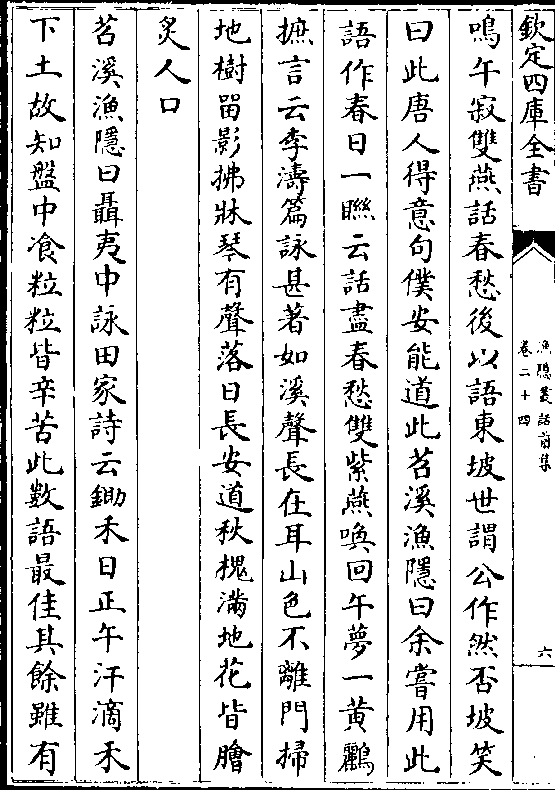 欽定四庫全書
漁隱叢話前集
卷二十四
六
鳴午寂雙燕話春愁後以語東坡世謂公作然否坡笑
曰此唐人得意句僕安能道此苕溪漁隱曰余嘗用此
語作春日一聮云話盡春愁雙紫燕喚回午夢一黄鸝
摭言云李濤篇詠甚著如溪聲長在耳山色不離門掃
地樹留影拂牀琴有聲落日長安道秋槐滿地花皆膾
炙人口
苕溪漁隱曰聶夷中詠田家詩云鋤禾日正午汗滴禾
下土故知盤中飡粒粒皆辛苦此數語最佳其餘雖有